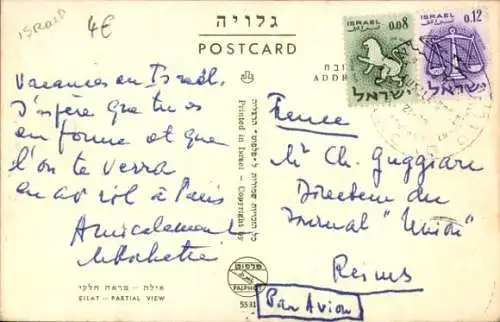 ISRAEL
4€
גלויה
POSTCARD
ISRAEL 0.08
ישראל
ISRAEL 0.12
ישראל
ADDR
Vacances en Israël.
J'espère que tu es
en forme et que
l'on te verra
en avril à Paris
Amicalement
France
Mr Ch. Guggiari
Directeur du
Journal "Union"
Reims
Par Avion
Printed in Israel - Copyright by
פלפוט
PALPHOT
אילת - מראה חלקי
EILAT - PARTIAL VIEW